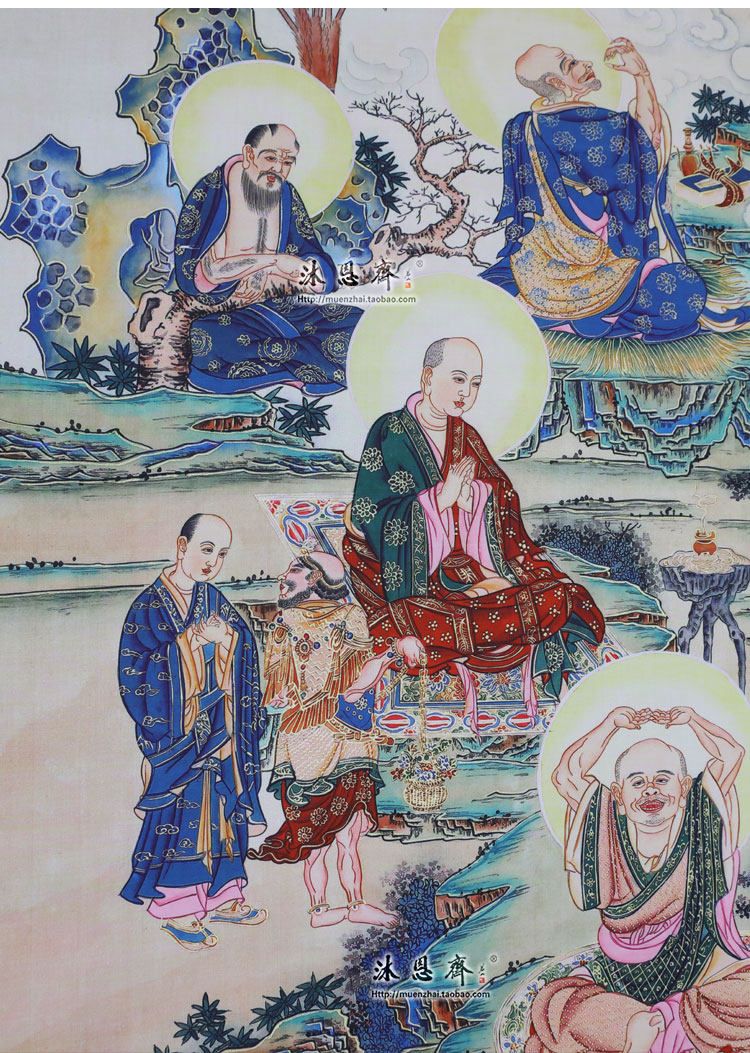 沐恩齋®
Http://muenzhai.taobao.com
沐恩齋®
Http://muenzhai.taobao.com